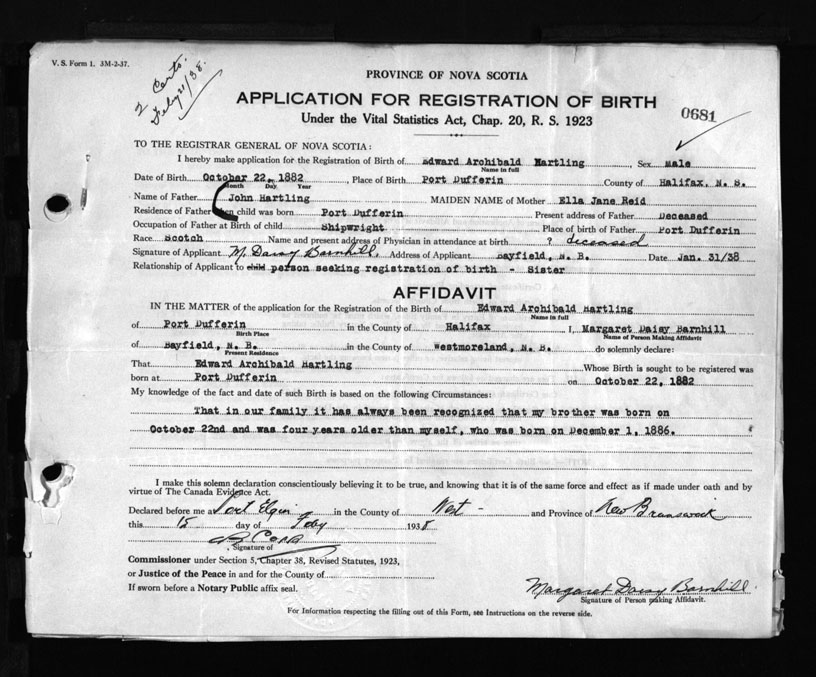 V. S. Form 1. 3M-2-37.
2 Certs.
Feby 21/38.
PROVINCE OF NOVA SCOTIA
APPLICATION FOR REGISTRATION OF BIRTH
0681
Under the Vital Statistics Act, Chap. 20, R. S. 1923
TO THE REGISTRAR GENERAL OF NOVA SCOTIA:
I hereby make application for the Registration of Birth of Edward Archibald Hartling, Sex Male
Name in full
Date of Birth October 22, 1882, Place of Birth Port Dufferin County of Halifax, N. S.
Month Day Year
Name of Father John Hartling MAIDEN NAME of Mother Ella Jane Reid
Residence of Father when child was born Port Dufferin Present address of Father Deceased
Occupation of Father at Birth of child Shipwright Place of birth of Father Port Dufferin
Race Scotch Name and present address of Physician in attendance at birth ? deceased
Signature of Applicant M. Daisy Barnhill, Address of Applicant Bayfield, N. B. Date Jan. 31/38
Relationship of Applicant to child person seeking registration of birth - Sister
AFFIDAVIT
IN THE MATTER of the application for the Registration of the Birth of Edward Archibald Hartling
Name in full
of Port Dufferin in the County of Halifax I, Margaret Daisy Barnhill
Birth Place Name of Person Making Affidavit
of Bayfield, N. B. in the County of Westmoreland, N. B. do solemnly declare:
Present Residence
That Edward Archibald Hartling Whose Birth is sought to be registered was
born at Port Dufferin on October 22, 1882
My knowledge of the fact and date of such Birth is based on the following Circumstances:
That in our family it has always been recognized that my brother was born on
October 22nd and was four years older than myself, who was born on December 1, 1886.
I make this solemn declaration conscientiously believing it to be true, and knowing that it is of the same force and effect as if made under oath and by
virtue of The Canada Evidence Act.
Declared before me at Port Elgin in the County of West - and Province of New Brunswick
this 15 day of Feby 1938
Signature of
Commissioner under Section 5, Chapter 38, Revised Statutes, 1923,
or Justice of the Peace in and for the County of
If sworn before a Notary Public affix seal.
Margaret Daisy Barnhill
Signature of Person making Affidavit.
For Information respecting the filling out of this Form, see Instructions on the reverse side.